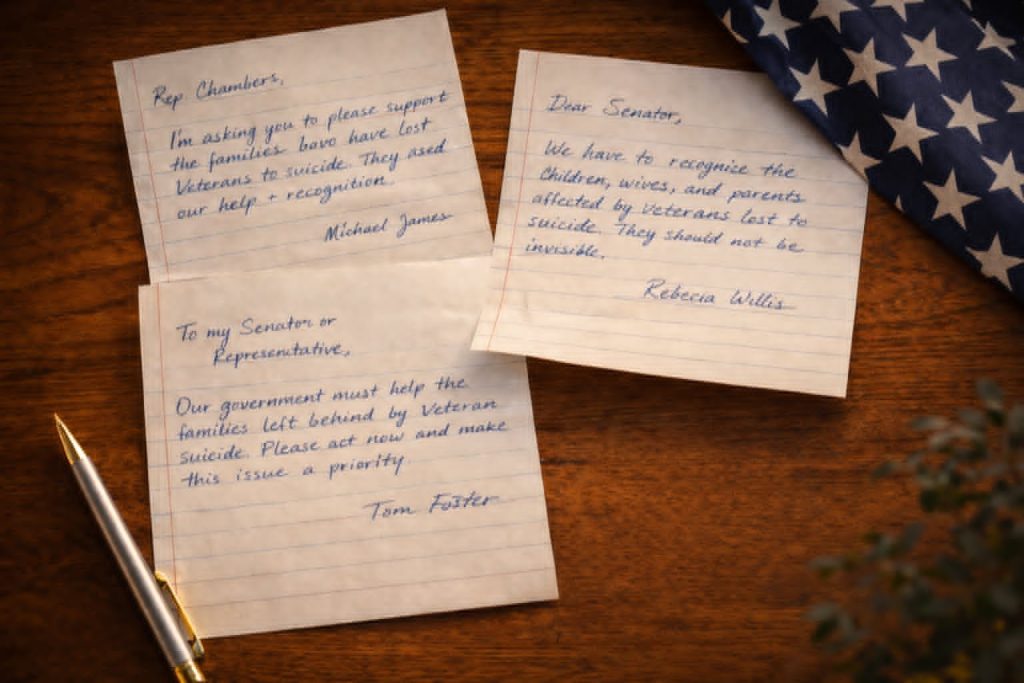 Rep. Chambers,
I'm asking you to please support
the families bavo have lost
Veterans to suicide. They ased
our help + recognition.
Michael James
Dear Senator,
We have to recognize the
Children, wives, and parents
affected by veterans lost to
suicide. They should not be
invisible.
Rebecia Willis
To my Senator or
Represenitative,
Our government must help the
families left behind by Veteran
suicide. Please act now and make
this issue a priority.
Tom Foster